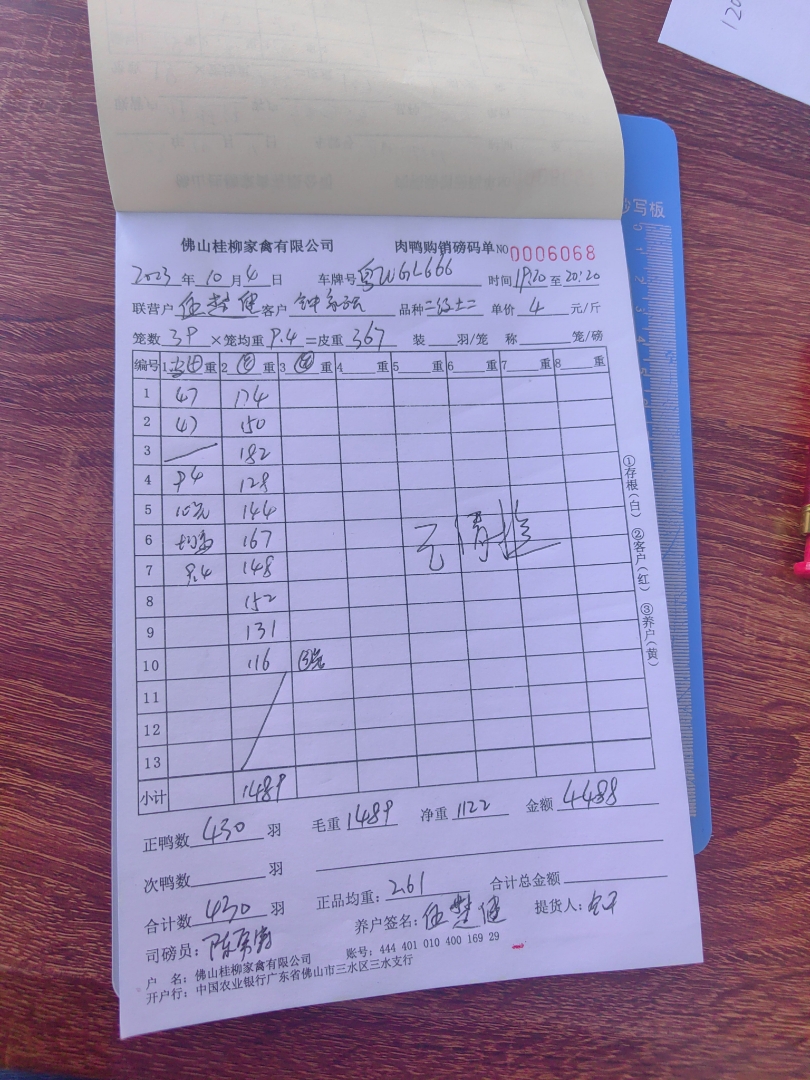 120
抄写板
佛山桂柳家禽有限公司 肉鸭购销磅码单 NO 0006068
2023 年 10 月 4 日 车牌号 粤WGL666 时间 19:20 至 20:20
联营户 伍楚健 客户 钟 品种 二级土二 单价 4 元/斤
笼数 39 ×笼均重 9.4 =皮重 367 装 羽/笼 称 笼/磅
编号 1 重 2 重 3 重 4 重 5 重 6 重 7 重 8 重
1 47 174
2 47 150
3 182
4 94 128
5 10笼 144
6 均重 167
7 9.4 148
8 152
9 131
10 116
11
12
13
小计 1489
已清栏
①存根(白) ②客户(红) ③养户(黄)
正鸭数 430 羽 毛重 1489 净重 1122 金额 4488
次鸭数 羽
合计数 430 羽 正品均重: 2.61 合计总金额
司磅员: 陈 养户签名: 伍楚健 提货人:
户 名: 佛山桂柳家禽有限公司 账号: 444 401 010 400 169 29
开户行: 中国农业银行广东省佛山市三水区三水支行